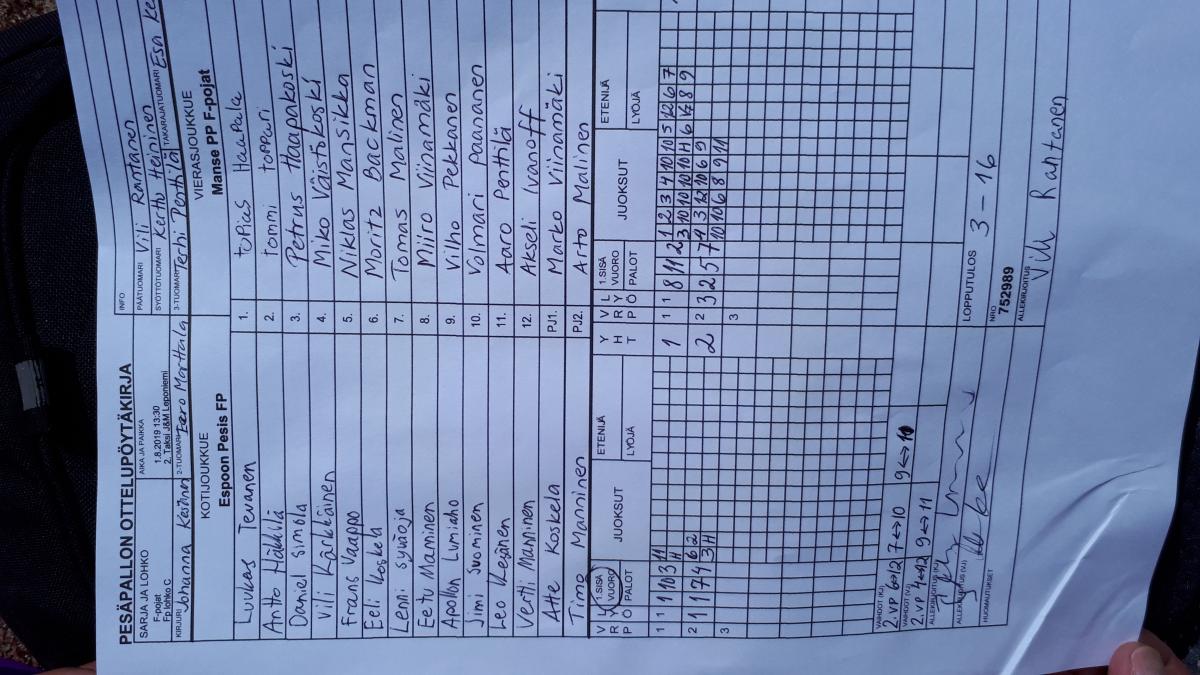 PESÄPALLON OTTELUPÖYTÄKIRJA
SARJA JA LOHKO
F-pojat
Fp lohko C
AIKA JA PAIKKA
1.8.2019 13:30
2. Taksi J&M Leponiemi
INFO
PÄÄTUOMARI Vili Rantanen
SYÖTTÖTUOMARI Kerttu Heininen
TAKARAJATUOMARI Esa Ke
KIRJURI Johanna Kesänen
2-TUOMARI Eero Marttala
3-TUOMARI Terhi Penttilä
KOTIJOUKKUE
Espoon Pesis FP
VIERASJOUKKUE
Manse PP F-pojat
Luukas Tervanen 1. topias Haapala
Antto Häkkilä 2. tommi toppari
Daniel Simola 3. Petrus Haapakoski
Vili Kärkkäinen 4. Miko Väistökoski
Frans Vaappo 5. Niklas Mansikka
Eeli Koskela 6. Moritz Backman
Lenni syväoja 7. Tomas Malinen
Eetu Manninen 8. Miiro Viinamäki
Apollon Lumiaho 9. Vilho Pekkanen
Jimi Suominen 10. Volmari Paananen
Leo Kesänen 11. Aaro Penttilä
Vertti Manninen 12. Akseli Ivanoff
Atte Koskela PJ1. Marko Viinamäki
Timo Manninen PJ2. Arto Malinen
V R P
L Y Ö
1.SISÄ VUORO
PALOT
JUOKSUT
ETENIJÄ
LYÖJÄ
Y H T
V R P
L Y Ö
1.SISÄ VUORO
PALOT
JUOKSUT
ETENIJÄ
LYÖJÄ
1 1 1 10 3 11 1 1 1 8 11 2 1 2 3 4 10 10 5 12 6 7
H 3 10 10 10 10 H 6 8 9
2 1 1 7 4 6 2 2 2 3 2 5 7 1 3 12 10 6 9
3 H 10 10 6 8 9 11
3 3
VAIHDOT (KJ)
2. VP 6↔12 7↔10 9↔10
VAIHDOT (VJ)
2. VP 4↔12 9↔11
ALLEKIRJOITUS (KJ)
ALLEKIRJOITUS (VJ)
HUOMAUTUKSET
LOPPUTULOS 3 - 16
NRO
752989
ALLEKIRJOITUS
Vili Rantanen